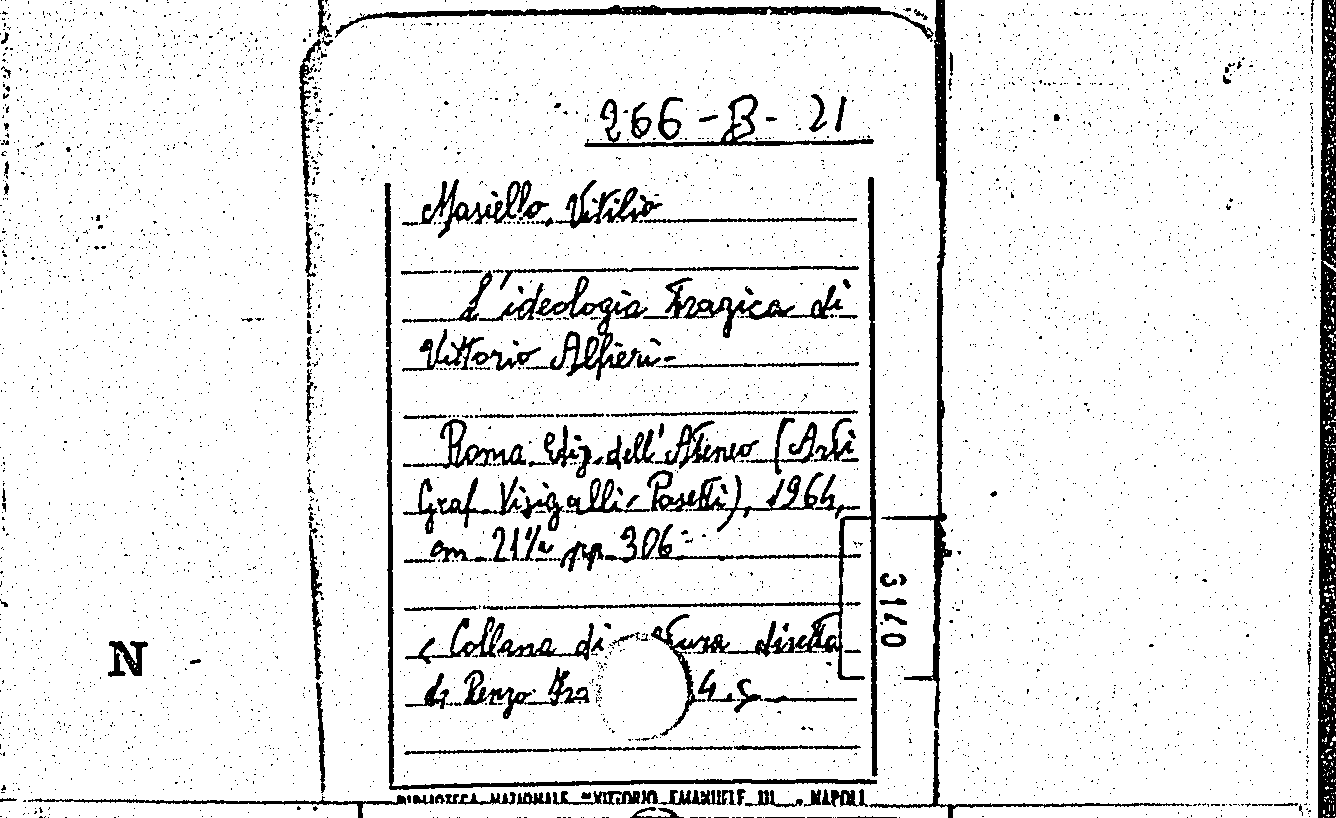 266-B-21
Masiello, Vitilio
L'ideologia tragica di
Vittorio Alfieri-
Roma. Ediz. dell'Ateneo (Arti
Graf. Visigalli-Pasetti), 1964,
cm 21½ pp. 306
3140
( Collana di diretta
di Renzo 4.
N
BIBLIOTECA NAZIONALE "VITTORIO EMANUELE III - NAPOLI